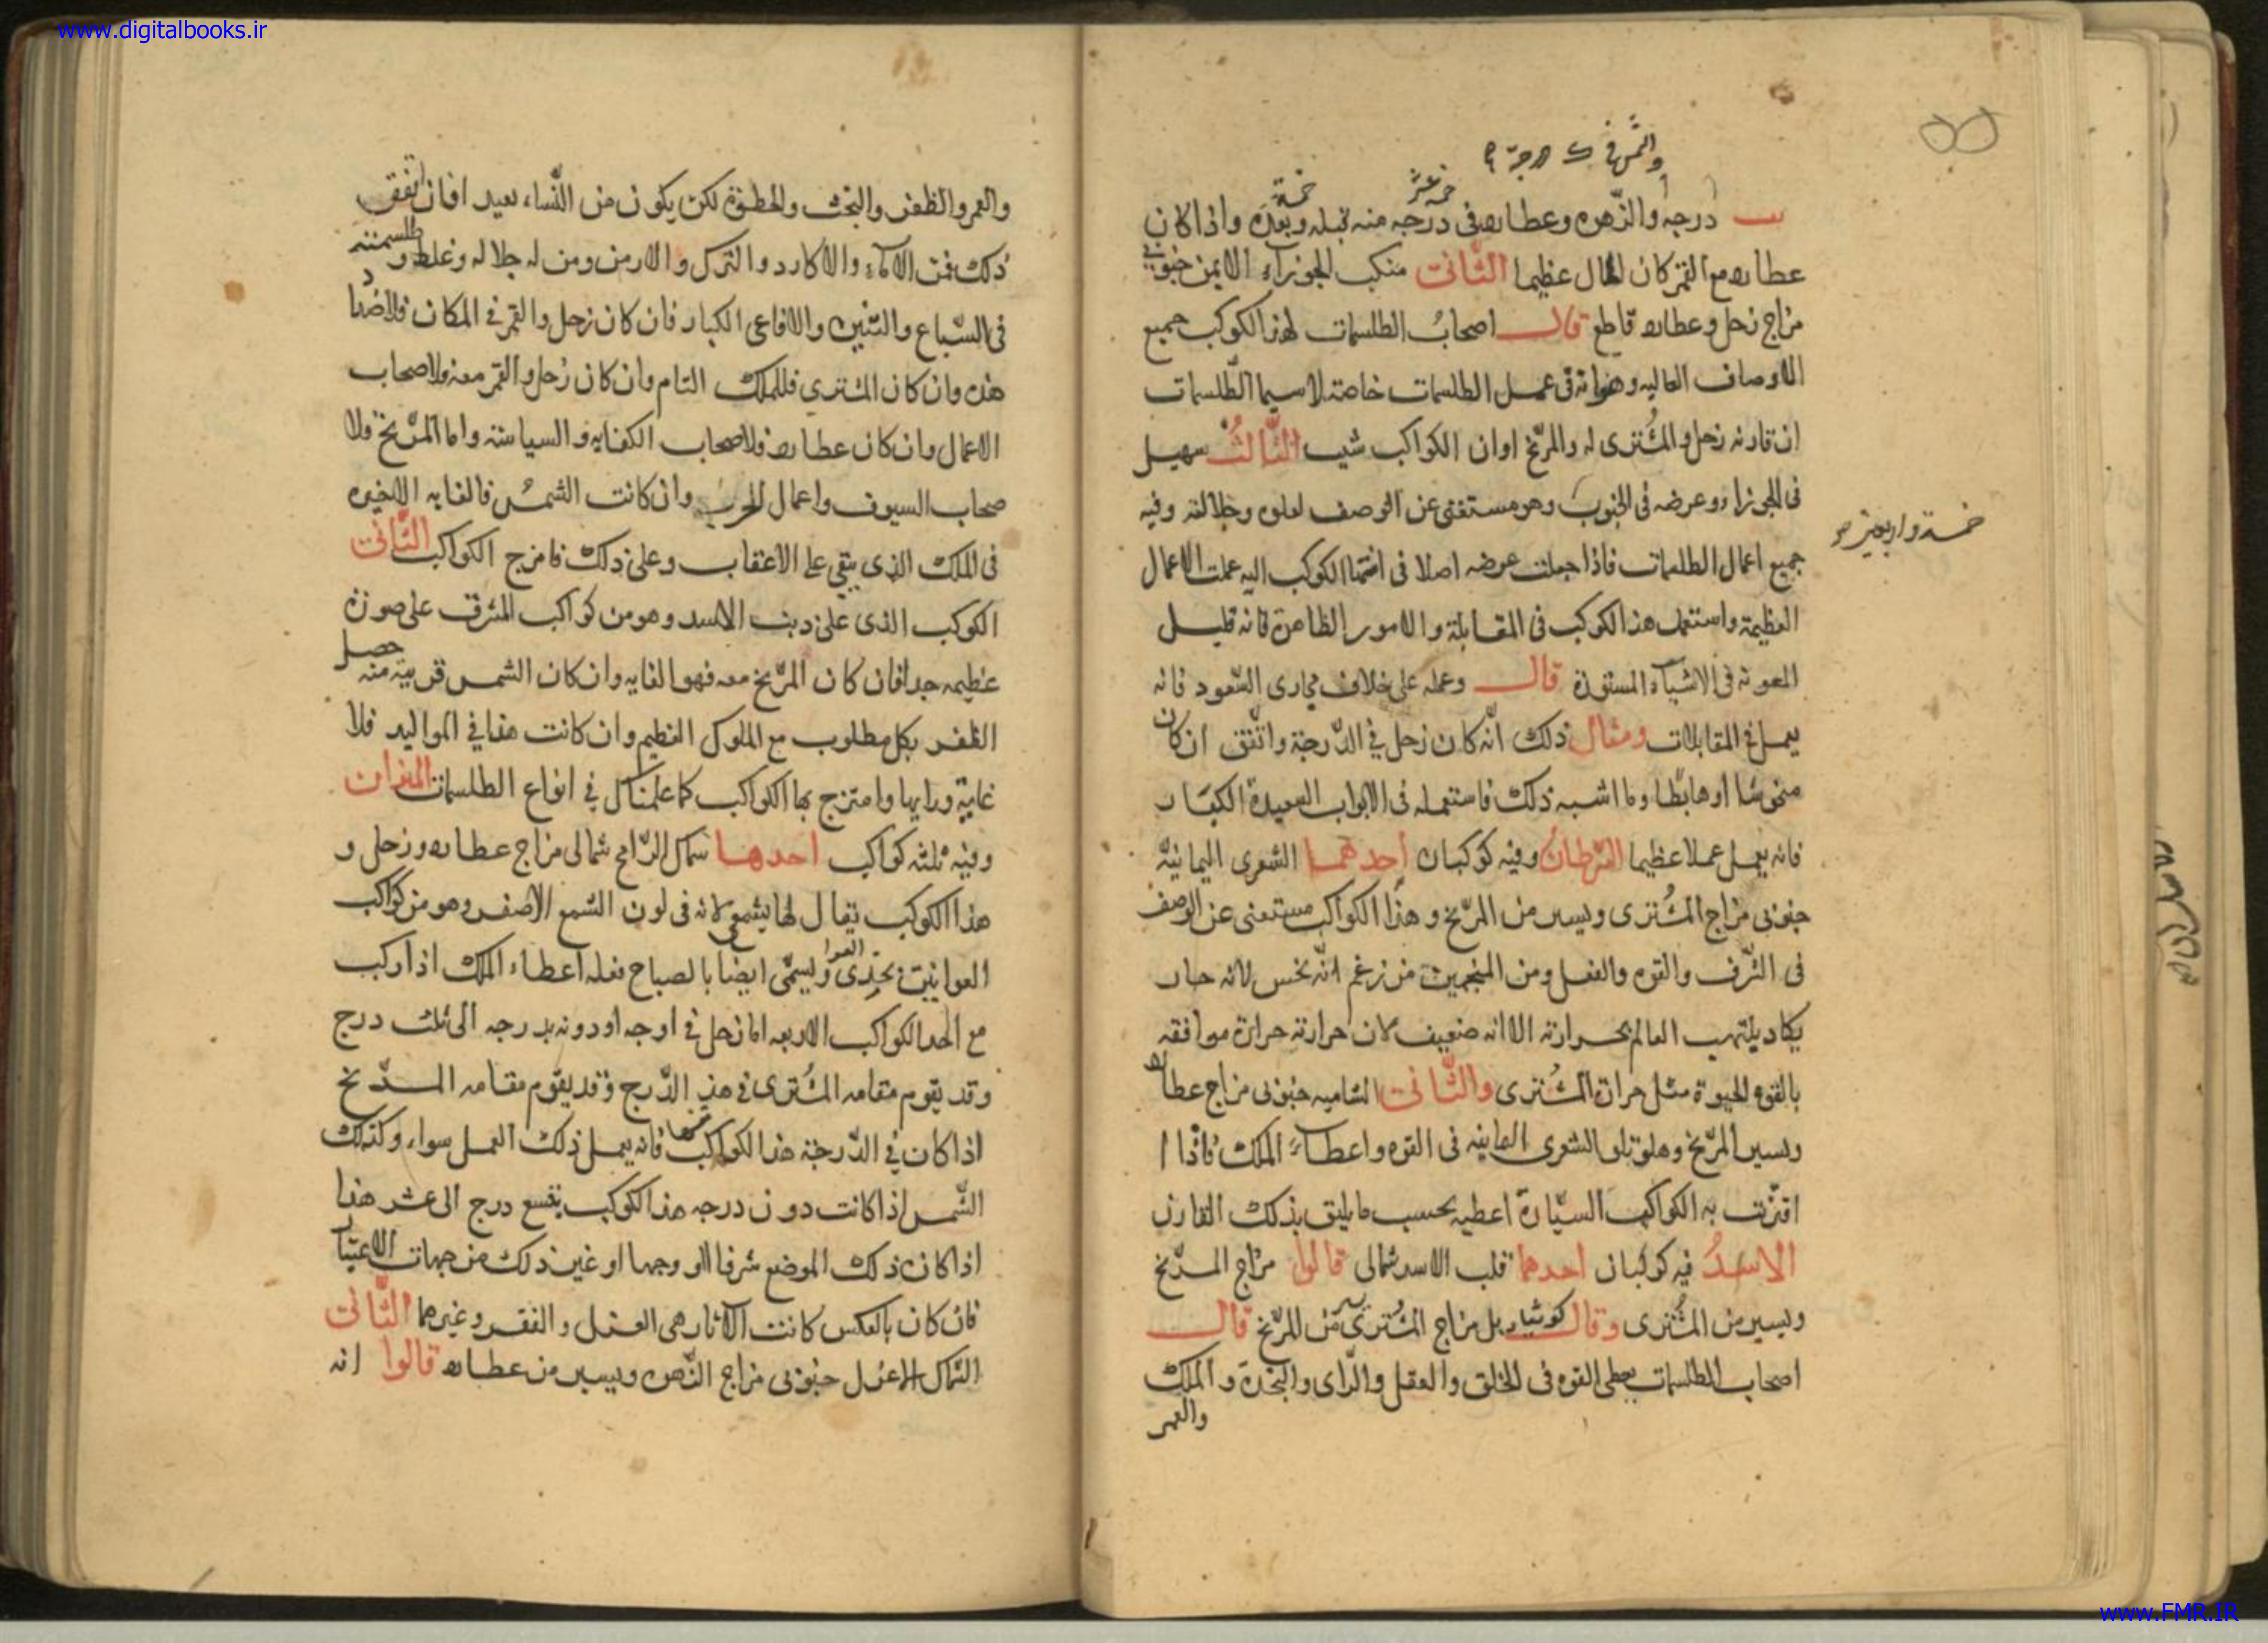 www.digitalbooks.ir
۵۵
درجة والزهره وعطارد فى درجه منه قبله وبعده واذا كان
خمسة عشر
خمسة
عطارد مع القمر كان الحال عظيما الثانى منكب الجوزآء الايمن جنوبى
مزاج زحل وعطارد قاطع قال اصحابُ الطلسمات لهذا الكوكب جميع
الاوصاف العاليه وهو انه فى عمل الطلسمات خاصة لاسيما الطّلسمات
ان قارنه زحل والمُشترى له والمرّيخ اوان الكواكب شيب الثّالثُ سهيل
فى الجوزاء وعرضه فى الجنوب وهو مستغنى عن الوصف لعلوه وجلالته وفيه
خمسة واربعين
جميع اعمال الطلسمات فاذا جعلت عرضه اصلا فى الكوكب اليه عملت الاعمال
العظيمة واستعمل هذا الكوكب فى المقابلة والامور الظاهرة فانه قليل
المعونة فى الاشيآء المستورة قال وعمله على خلاف مجارى السّعود فانه
يعمل فى المقابلات ومثال ذلك انّه كان زحل فى الدّرجة واتّفق ان كان
منحوسًا او هابطًا وما اشبه ذلك فاستعمله فى الابواب السعيدة الكبار
فانه يعمل عملا عظيما السّرطان وفيه كوكبان احدهما الشعرى اليمانيّة
جنوبى مزاج المُشترى ويسير من المرّيخ وهذا الكواكب مستغنى عن الوصف
فى الشّرف والقوه والفعل ومن المنجمين من زعم انّه نحس لانه حار
يكاد يلتهب العالم بحرارته الا انه ضعيف لان حرارته حرارة موافقه
بالقوه الحيوة مثل حرارة المُشترى والثّانى الشاميه جنوبى مزاج عطارد
ويسير المرّيخ وهو يتلو الشعرى اليمانيه فى القوه واعطآء الملك فاذا ا
اقترنت به الكواكب السيّارة اعطيه بحسب ما يليق بذلك القارن
الاسدُ فيه كوكبان احدهما قلب الاسد شمالى قالوا مزاج المرّيخ
ويسير من المُشترى وقال كوشيار بل مزاج المُشترى من المرّيخ قال
اصحاب الطلسمات يعطى القوه فى الخلق والعقل والرّاى والنجدة والملك
والعمر
والعمر والظفر والبخت والحظوة لكن يكون من النّساء بعيدا فان اتفق
ذلك فمن الامآء والاكارد والترك والارمن ومن له جلاله وغلظ وطلسمته
فى السّباع والتنين والافاعى الكبار فان كان زحل والقمر فى المكان فلاضدا
د
هذه وان كان المشترى فللملك التام وان كان زُحل والقمر معه فلاصحاب
الاعمال وان كان عطارد فلاصحاب الكفايه والسياسة واما المرّيخ فلا
صحاب السيوف واعمال الحرب وان كانت الشمسُ فالغايه الاخيره
فى الملك الذى يبقى على الاعقاب وعلى ذلك فامزج الكواكب الثّانى
الكوكب الذى على ذنب الاسد وهو من كواكب المشرق على صورة
عظيمه جدا فان كان المرّيخ معه فهو الغايه وان كان الشمس قريبة منه حصل
الظفر بكل مطلوب مع الملوك العظيم وان كانت هذا فى المواليد فلا
غاية ورايها وامتزج بها الكواكب كما علمناك فى انواع الطلسمات الميزان
وفيه ثلثة كواكب احدها سماك الرّامح شمالى مزاج عطارد وزحل و
هذا الكوكب يقال لها لانه فى لون الشمع الاصفر وهو من كواكب
ويسمّى ايضا بالصباح فعله اعطاء الملك اذا ركب
العوا
مع احد الكواكب الاربعه اما زحل فى اوجه او دونه بدرجه الى ثلث درج
وقد يقوم مقامه المُشترى فى هذه الدّرج وقد يقوم مقامه المرّيخ
اذا كان فى الدّرجة هذا الكوكب فانه يعمل ذلك العمل سواء وكذلك
الشّمس اذا كانت دون درجه هذا الكوكب بتسع درج الى عشر هذا
اذا كان ذلك الموضع شرفا او وجها او غير ذلك من جهات الاعتبار
فان كان بالعكس كانت الاثار هى العزل والفقر وغيرها الثّانى
السّماك الاعزل جنوبى مزاج الزّهره ويسير من عطارد قالوا انه
www.FMR.IR